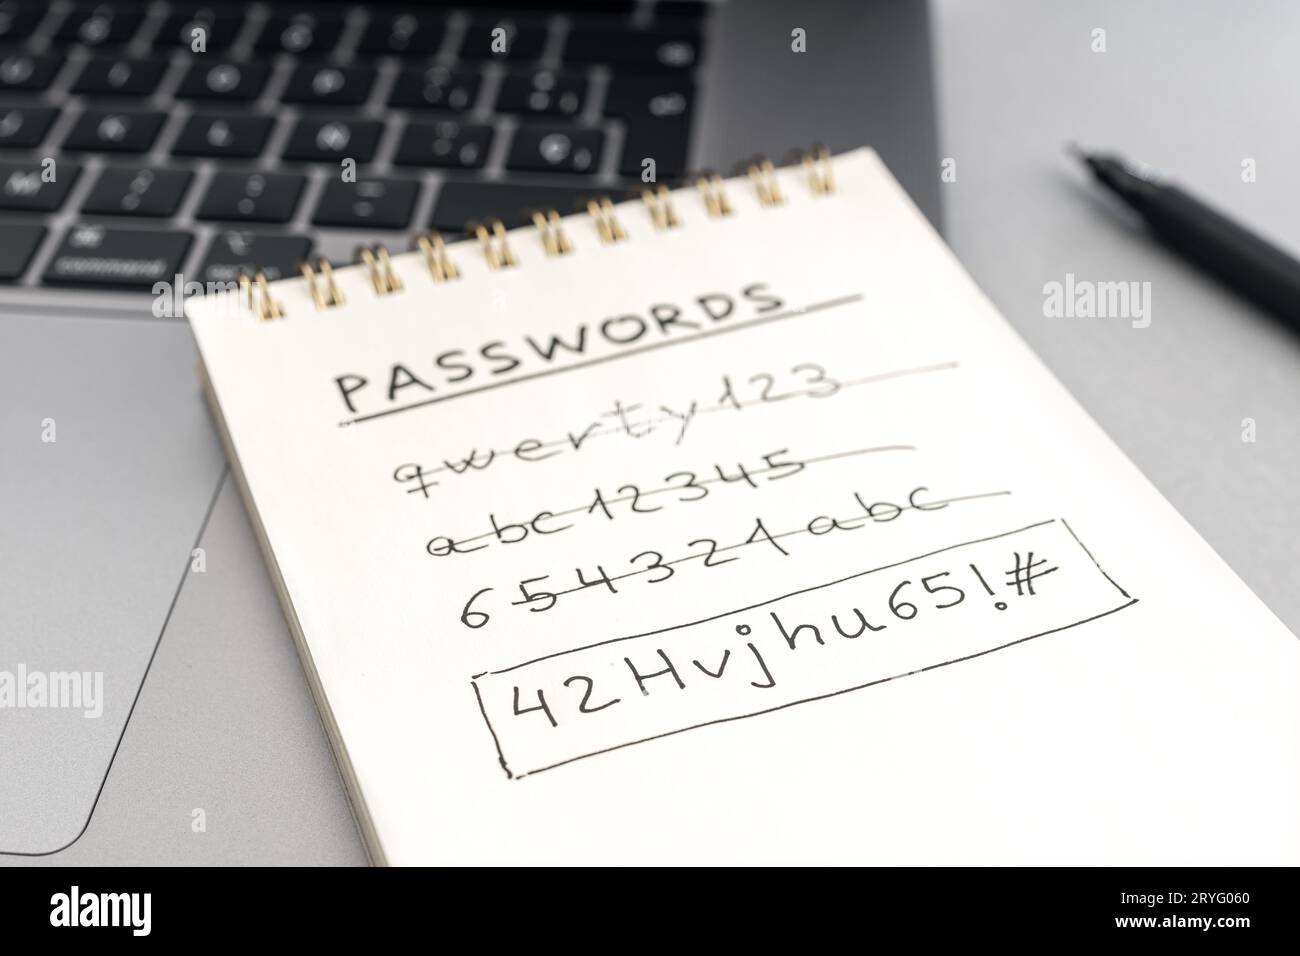 PASSWORDS
qwerty123
abc12345
654321abc
42Hvjhu65!#
command
alamy
Image ID: 2RYG060
www.alamy.com